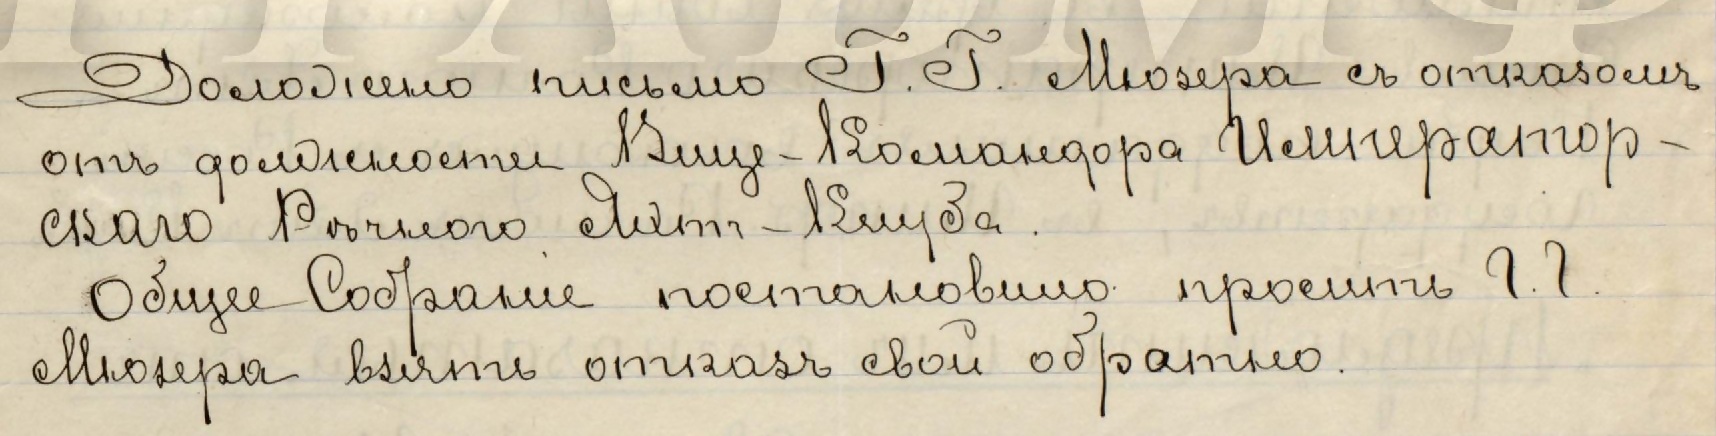 Доложено письмо Г. Г. Мюзера съ отказомъ
отъ должности Вице-Командора Император-
скаго Рѣчного Яхт-Клуба.
Общее Собраніе постановило просить Г. Г.
Мюзера взять отказъ свой обратно.